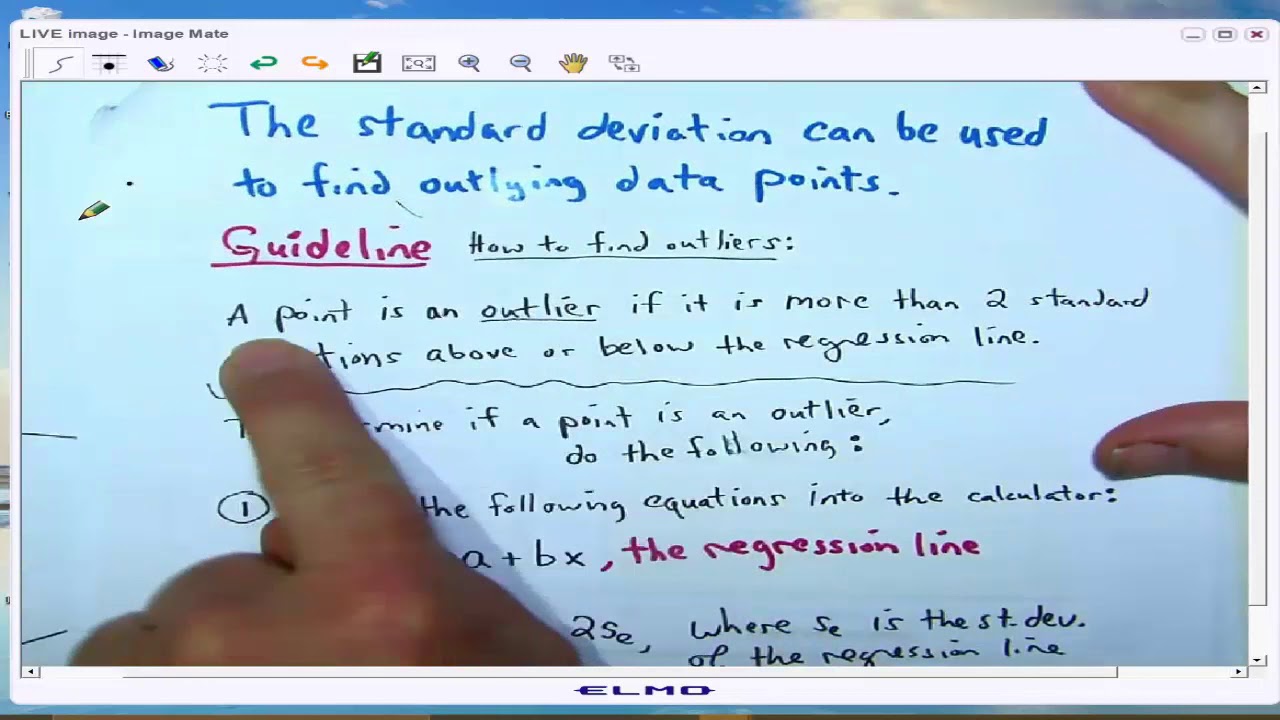 LIVE image - Image Mate
The standard deviation can be used
to find outlying data points.
Guideline How to find outliers:
A point is an outlier if it is more than 2 standard
above or below the regression line.
if a point is an outlier,
do the following:
1 the following equations into the calculator:
a + bx, the regression line
2se, where se is the st. dev.
of the regression line
ELMO